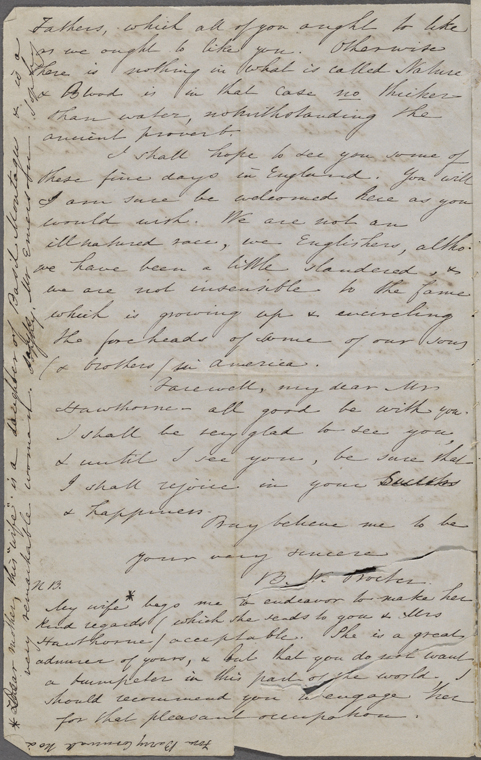 Fathers, which all of you ought to like
as we ought to like you. Otherwise
there is nothing in what is called Nature
& Blood is in that case no thicker
than water, notwithstanding the
ancient proverb.
I shall hope to see you some of
these fine days in England. You will
I am sure be welcomed here as you
would wish. We are not an
illnatured race, we Englishers, altho'
we have been a little slandered, &
we are not insensible to the fame
which is growing up & encircling
the foreheads of some of our sons
(& brothers) in America.
Farewell, my dear Mr
Hawthorne - all good be with you.
I shall be very glad to see you,
& until I see you, be sure that
I shall rejoice in your success
& happiness.
Pray believe me to be
Your very sincere
B. W. Procter.
N B.
My wife * begs me to endeavor to make her
kind regards (which she sends to you & Mrs
Hawthorne) acceptable. She is a great
admirer of yours, & but that you do not want
a trumpeter in this part of the world, I
should recommend you to engage her
for that pleasant occupation.
* Dear mother, this "wife" is a daughter of Basil Montagu & is a
very remarkable woman. Mr Emerson
For Barry Cornwall